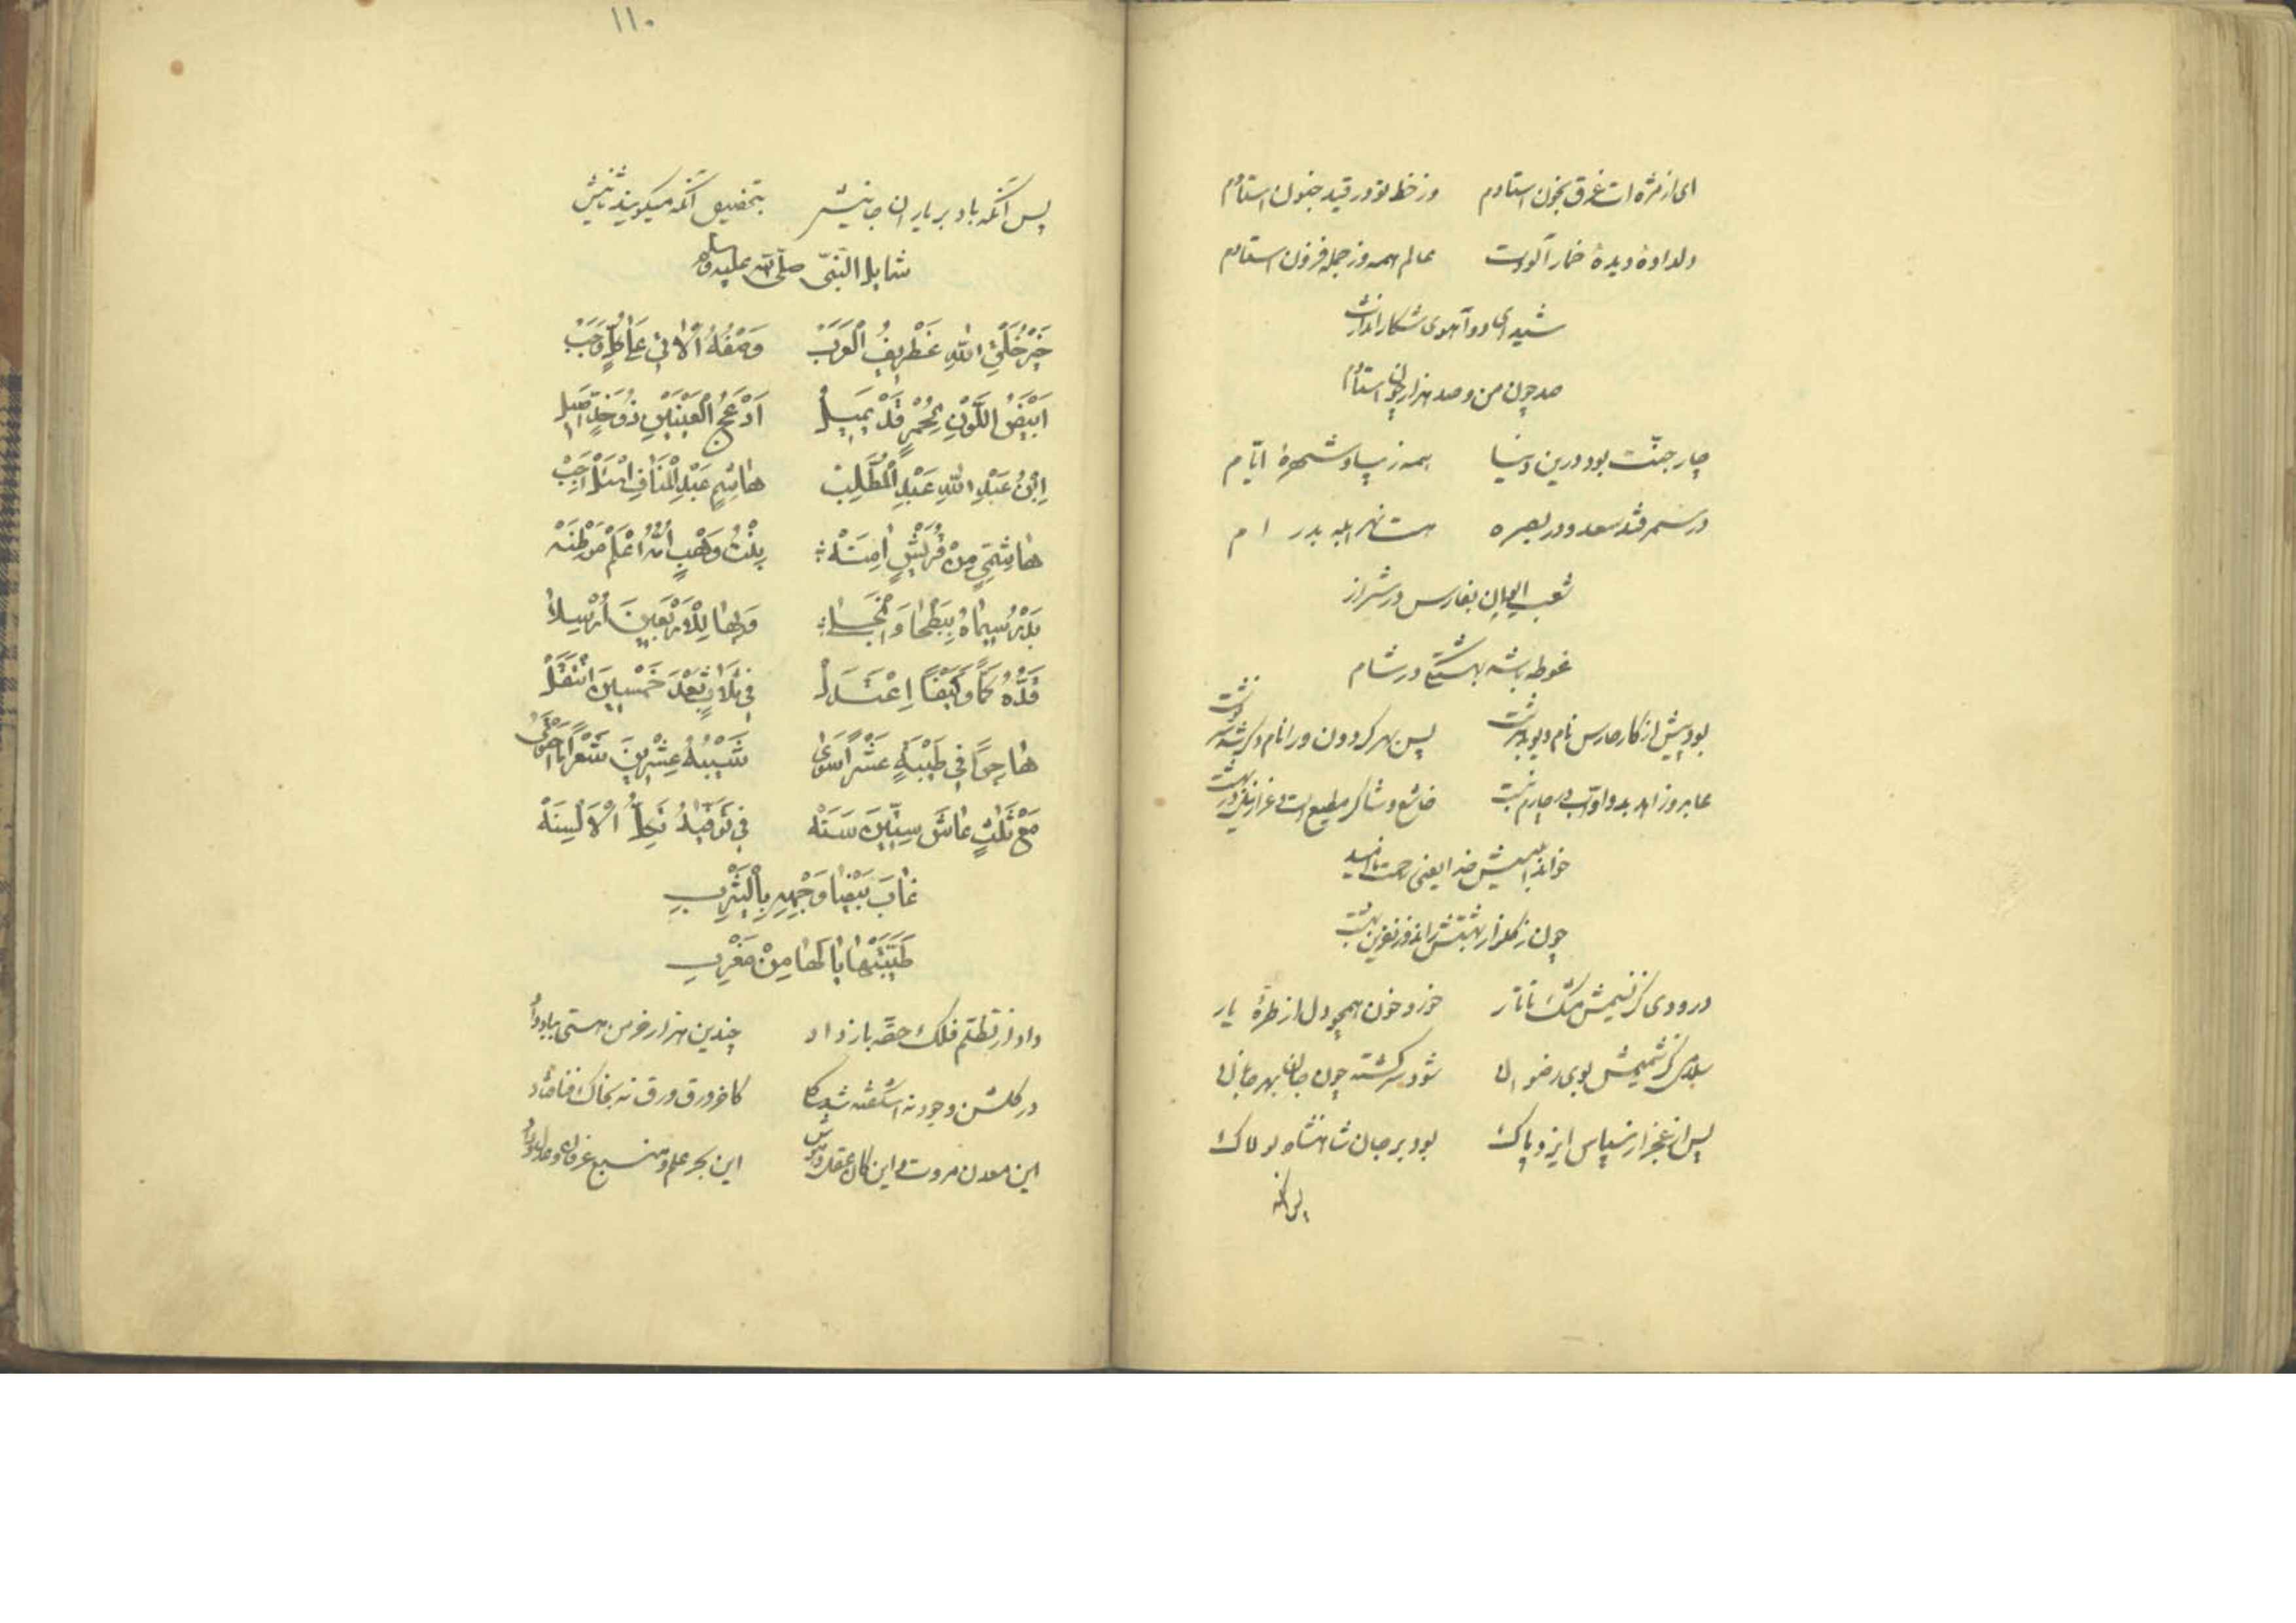 ای از مژه ات غرق بخون استادم وز خط تو در قید جنون استادم
دلدادهٔ دیدهٔ خمار آلودت عالم همه وز جمله فزون استادم
شیدای دو آهوی شکار اندازت
صد چون من و صد هزار چون استادم
چار جنّت بود درین دنیا همه زیبا و شهرهٔ ایّام
در سمرقند سعد و در بصره هست نهر ابله بدر ام
شعب ایوان بفارس در شیراز
غوطه بشه بهشتی در شام
بود پیش از کار حارس نام دیو پس بهر کردون ورا نام دگر
عابد و زاهد بد و اوّاب در چارم خاشع و شاکر مطیع است و عزازیل
خواند ابلیسش خدا یعنی
چون ز گلزار بهشتش راند و نفرین
درودی کز نسیمش مشک تاتار خورد خون همچو دل از طرهٔ یار
سلامی کز شمیمش بوی رضوان شود سرگشته چون جان بهر جانان
پس از عجز از سپاس ایزد پاک بود بر جان شاهنشاه لولاک
پس آنکه
۱۱۰
پس آنکه باد بر یاران جانیش بتخصیص آنکه میکویند ثانیش
شمایل النبیّ صلّی الله علیه وسلم
خَیْرُ خَلْقِ اللهِ غَطْرِیفُ الْعَرَبْ وَصْفُهُ الْآتِی عَلَی کُلٍّ وَجَبْ
اَبْیَضُ اللَّوْنِ لِحُمْرٍ قَدْ یَمِیلْ اَدْعَجُ الْعَیْنَیْنِ ذُو خَدٍّ اَسِیلْ
اِبْنُ عَبْدِ اللهِ عَبْدِ الْمُطَّلِبْ هَاشِمٍ عَبْدِ الْمَنَافِ
هَاشِمِیٍّ مِنْ قُرَیْشٍ آمِنَهْ بِنْتُ وَهْبٍ اُمُّهُ اعْلَمْ مَوْطِنَهْ
وَبِهَا لِلْاَرْبَعِینَ اُرْسِلَا
قَدُّهُ کَمًّا وَکَیْفًا اِعْتَدَلْ فِی ثَلَاثٍ بَعْدَ خَمْسِینَ انْتَقَلْ
هَاجِرًا فِی طَیْبَةٍ عَشْرًا سَوَی شَیْبُهُ عِشْرِینَ شَعْرًا مَا حَوَی
مَعْ ثَلٰثٍ عَاشَ سِتِّینَ سَنَهْ فِی تَوَفِّیهُ تَکِلُّ الْاَلْسِنَهْ
غَابَ بَیْضَا وَجْهِهِ بِالْیَثْرِبِ
طَیَّبَتْهَا یَا لَهَا مِنْ مَغْرِبِ
داد از تظلّم فلک حقّه باز داد چندین هزار خرمن هستی بباد داد
در گلشن وجود نه اشکفته شد گلی کآخر ورق ورق نه بخاک فنا فتاد
این معدن مروت و این کان عقل و هوش این بحر علم و منبع عرفان و عدل و داد